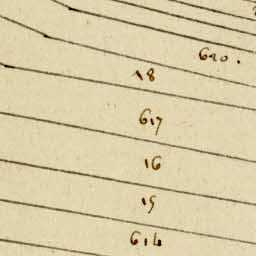 620.
18
617
16
15
614